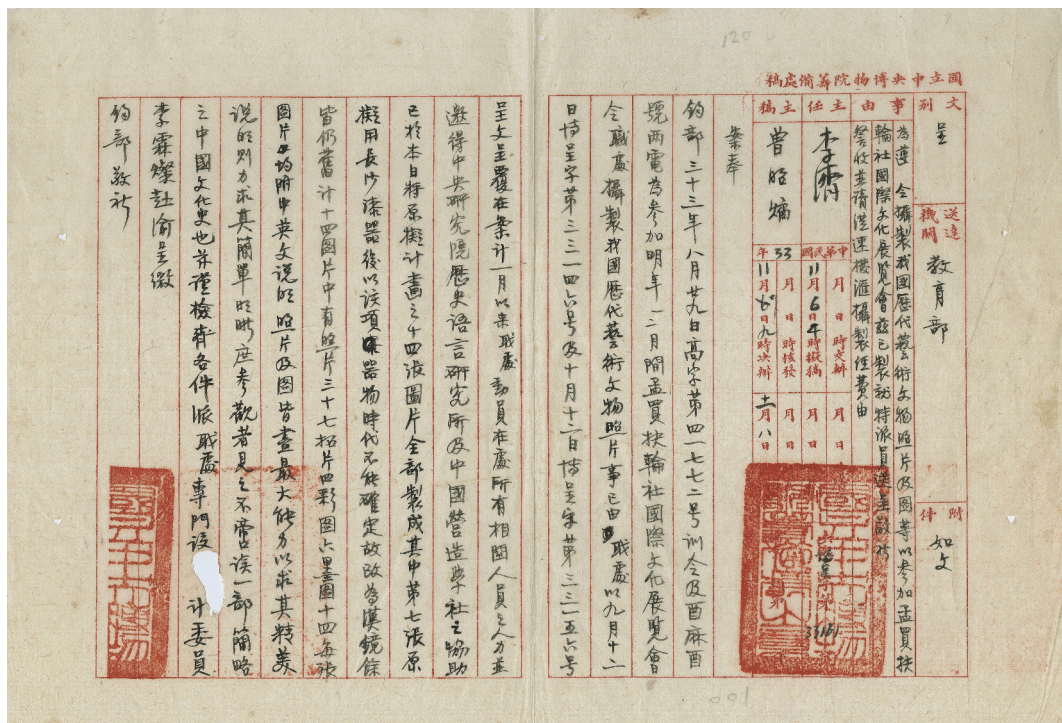 120
國立中央博物院籌備處稿
文別
呈
送達機關
教育部
附件
如文
事由
為遵 令攝製我國歷代藝術文物照片及圖等以參加孟買扶
輪社國際文化展覽會茲已製就特派員送呈敬祈
詧收並請迅速撥滙攝製經費由
主任
李濟
主稿
曾昭燏
中華民國33年
月 日 時交辦
11月6日4時擬稿
月 日 時核發
11月 日九時決辦
月 日
月 日
月 日
十一月八日
博呈字第
33151
案奉
鈞部三十三年八月廿九日高字第四一七七二号訓令及酉麻酉
號兩電為參加明年一二月間孟買扶輪社國際文化展覽會
令 職處攝製我國歷代藝術文物照片事已由 職處以九月十二
日博呈字第三三一四六号及十月十二日博呈字第三三一五六号
呈文呈覆在案計一月以來 職處動員在處所有相關人員之人力並
邀得中央研究院歷史語言研究所及中國營造學社之協助
已於本日將原擬計畫之十四張圖片全部製成其中第七張原
擬用長沙漆器後以該項漆器物時代不能確定故改為漢鏡餘
皆仍舊計十四圖片中有照片三十七拓片四彩圖六墨圖十四每張
圖片均附中英文说明照片及图皆盡最大能力以求其精美
说明则力求其簡單明晰庶參觀者見之不啻读一部簡略
之中國文化史也茲謹檢齊各件派職處專門设計委員
李霖燦赴渝呈繳
鈞部敬祈
001